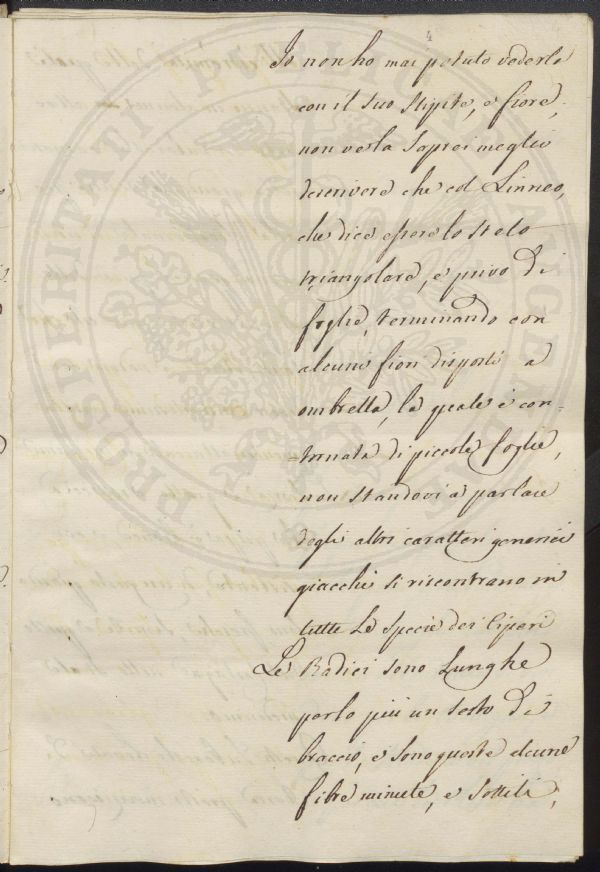 4
Io non ho mai potuto vederlo
con il suo Stipite, e fiore,
non ve la Saprei meglio
descrivere che col Linneo,
che dice essere lo stelo
triangolare, e privo di
foglie, terminando con
alcuni fiori disposti a
ombrella, la quale è con=
=tornata di piccole foglie,
non standovi a parlare
degli altri caratteri generici
giacchè si riscontrano in
tutte le specie dei Ciperi
Le Radici sono Lunghe
per lo più un sesto di
braccio, e sono queste alcune
fibre minute, e sottili,
PROSPERITATI PUBLICAE AUGENDAE